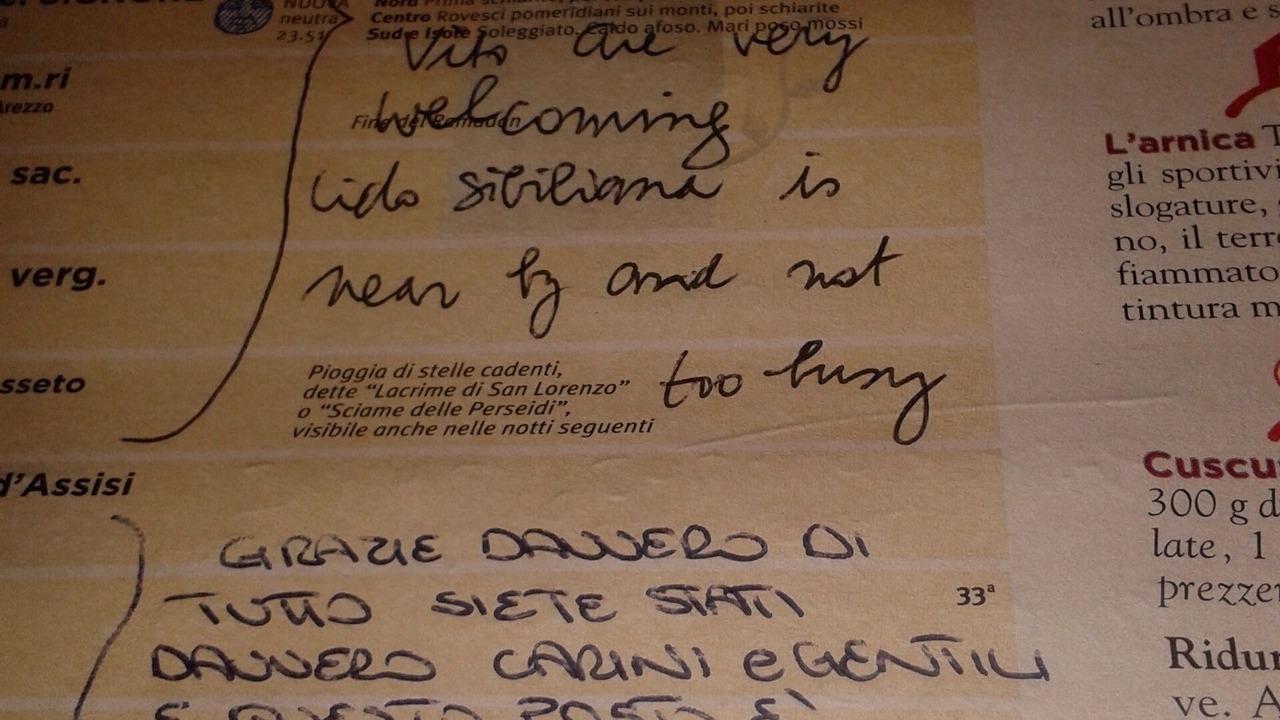 NUOVA
neutra
23.51
Centro Rovesci pomeridiani sui monti, poi schiarite
Sud e Isole Soleggiato. Caldo afoso. Mari poco mossi
Vito are very
welcoming
Fine del Ramadan
Lido siciliana is
near by and not
too busy
m.ri
Arezzo
sac.
verg.
sseto
Pioggia di stelle cadenti,
dette “Lacrime di San Lorenzo”
o “Sciame delle Perseidi”,
visibile anche nelle notti seguenti
d'Assisi
GRAZIE DAVVERO DI
TUTTO SIETE STATI
DAVVERO CARINI e GENTILI
E QUESTO POSTO È
33ª
all'ombra e s
L'arnica T
gli sportivi
slogature,
no, il terre
fiammato
tintura m
Cuscu
300 g d
late, 1
prezze
Ridur
ve. A